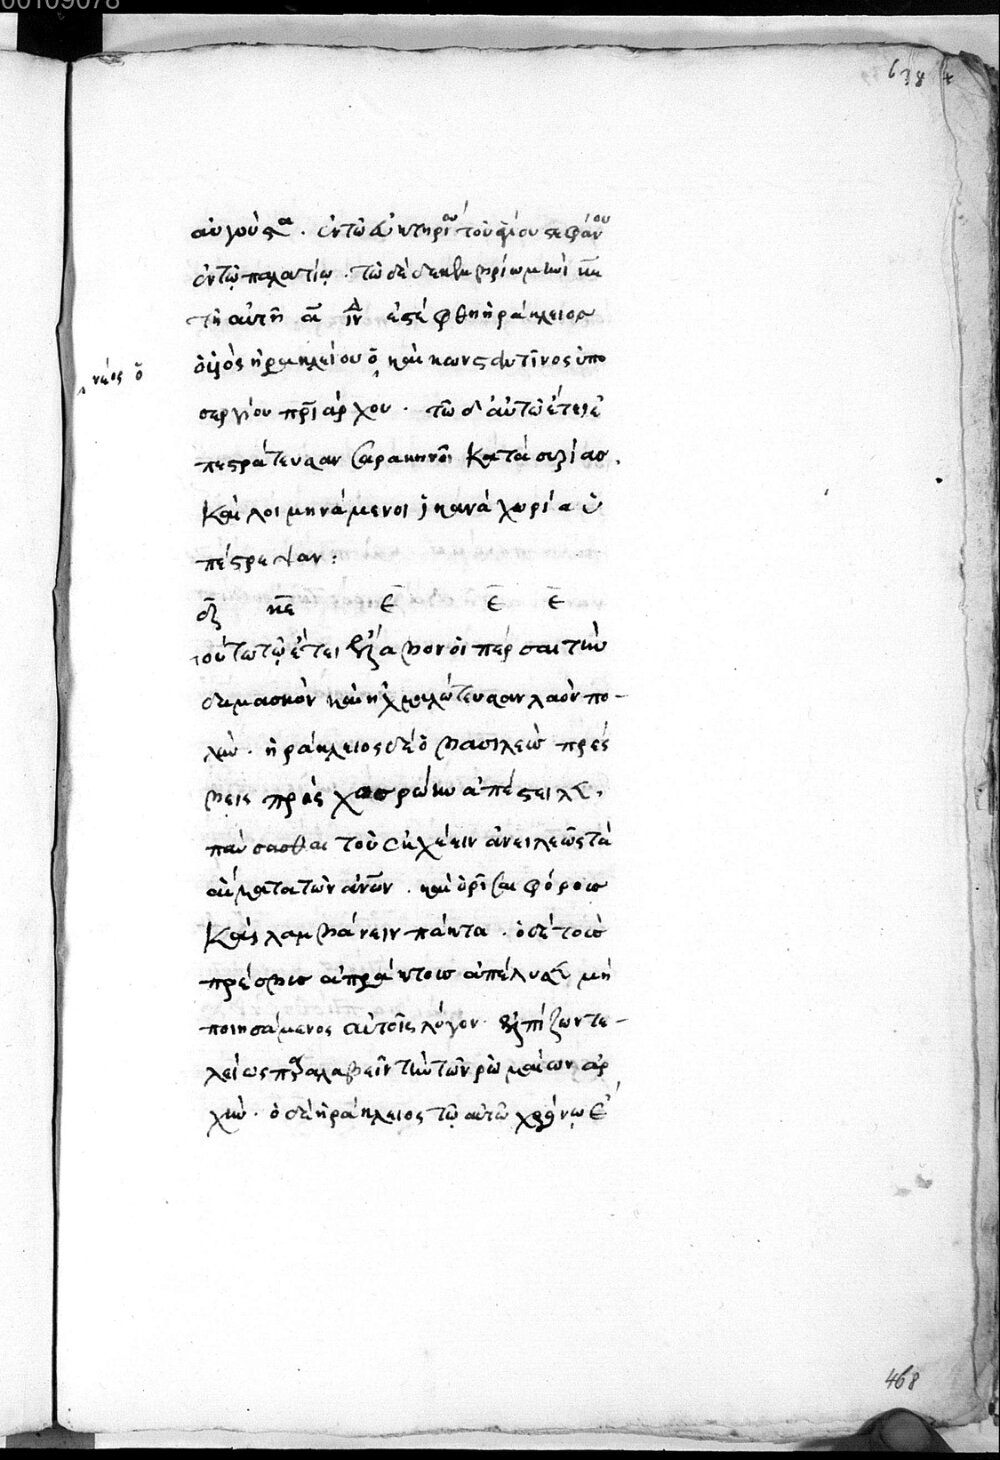 00109078
638
αὐγούςα. ἐν τῶ εὐκτηρίω τοῦ ἁγίου ςεφάνου
ἐν τῷ παλατίῳ. τῶ δὲ δεκεμβρίω μηνὶ κε
τῆ αὐτῆ α ἰνδ ἐςέφθη ἡράκλειος
ὁ υἱὸς ἡρακλείου ὁ καὶ κωνςαντῖνος ὑπὸ
νέος ὁ
σεργίου πριάρχου. τῶ δ' αὐτῶ ἔτει ἐ
πεςράτευσαν σαρακηνοὶ κατὰ συρίας.
καὶ λοιμηνάμενοι ἱκανὰ χωρία ὑ
πέςρεψαν:
κε ε ε ε
τούτω τῷ ἔτει ἔλαβον οἱ πέρσαι τὴν
δαμασκὸν καὶ ἠχμαλώτευσαν λαὸν πο-
λύν. ἡράκλειος δὲ ὁ βασιλεὺς πρές
βεις πρὸς χοσρόην ἀπέςειλε,
παύσασθαι τοῦ ἐκχέειν ἀνειλεῶς τὰ
αἵματα τῶν ἀνων. καὶ ὁρίσαι φόρους
καὶ λαμβάνειν πάκτα. ὁ δὲ τοὺς
πρέσβεις ἀπράκτους ἀπέλυσε μὴ
ποιησάμενος αὐτοῖς λόγον. ἐλπίζων τε-
λείως παραλαβεῖν τὴν τῶν ρωμαίων ἀρ
χήν. ὁ δὲ ἡράκλειος τῷ αὐτῶ χρόνῳ ε
468